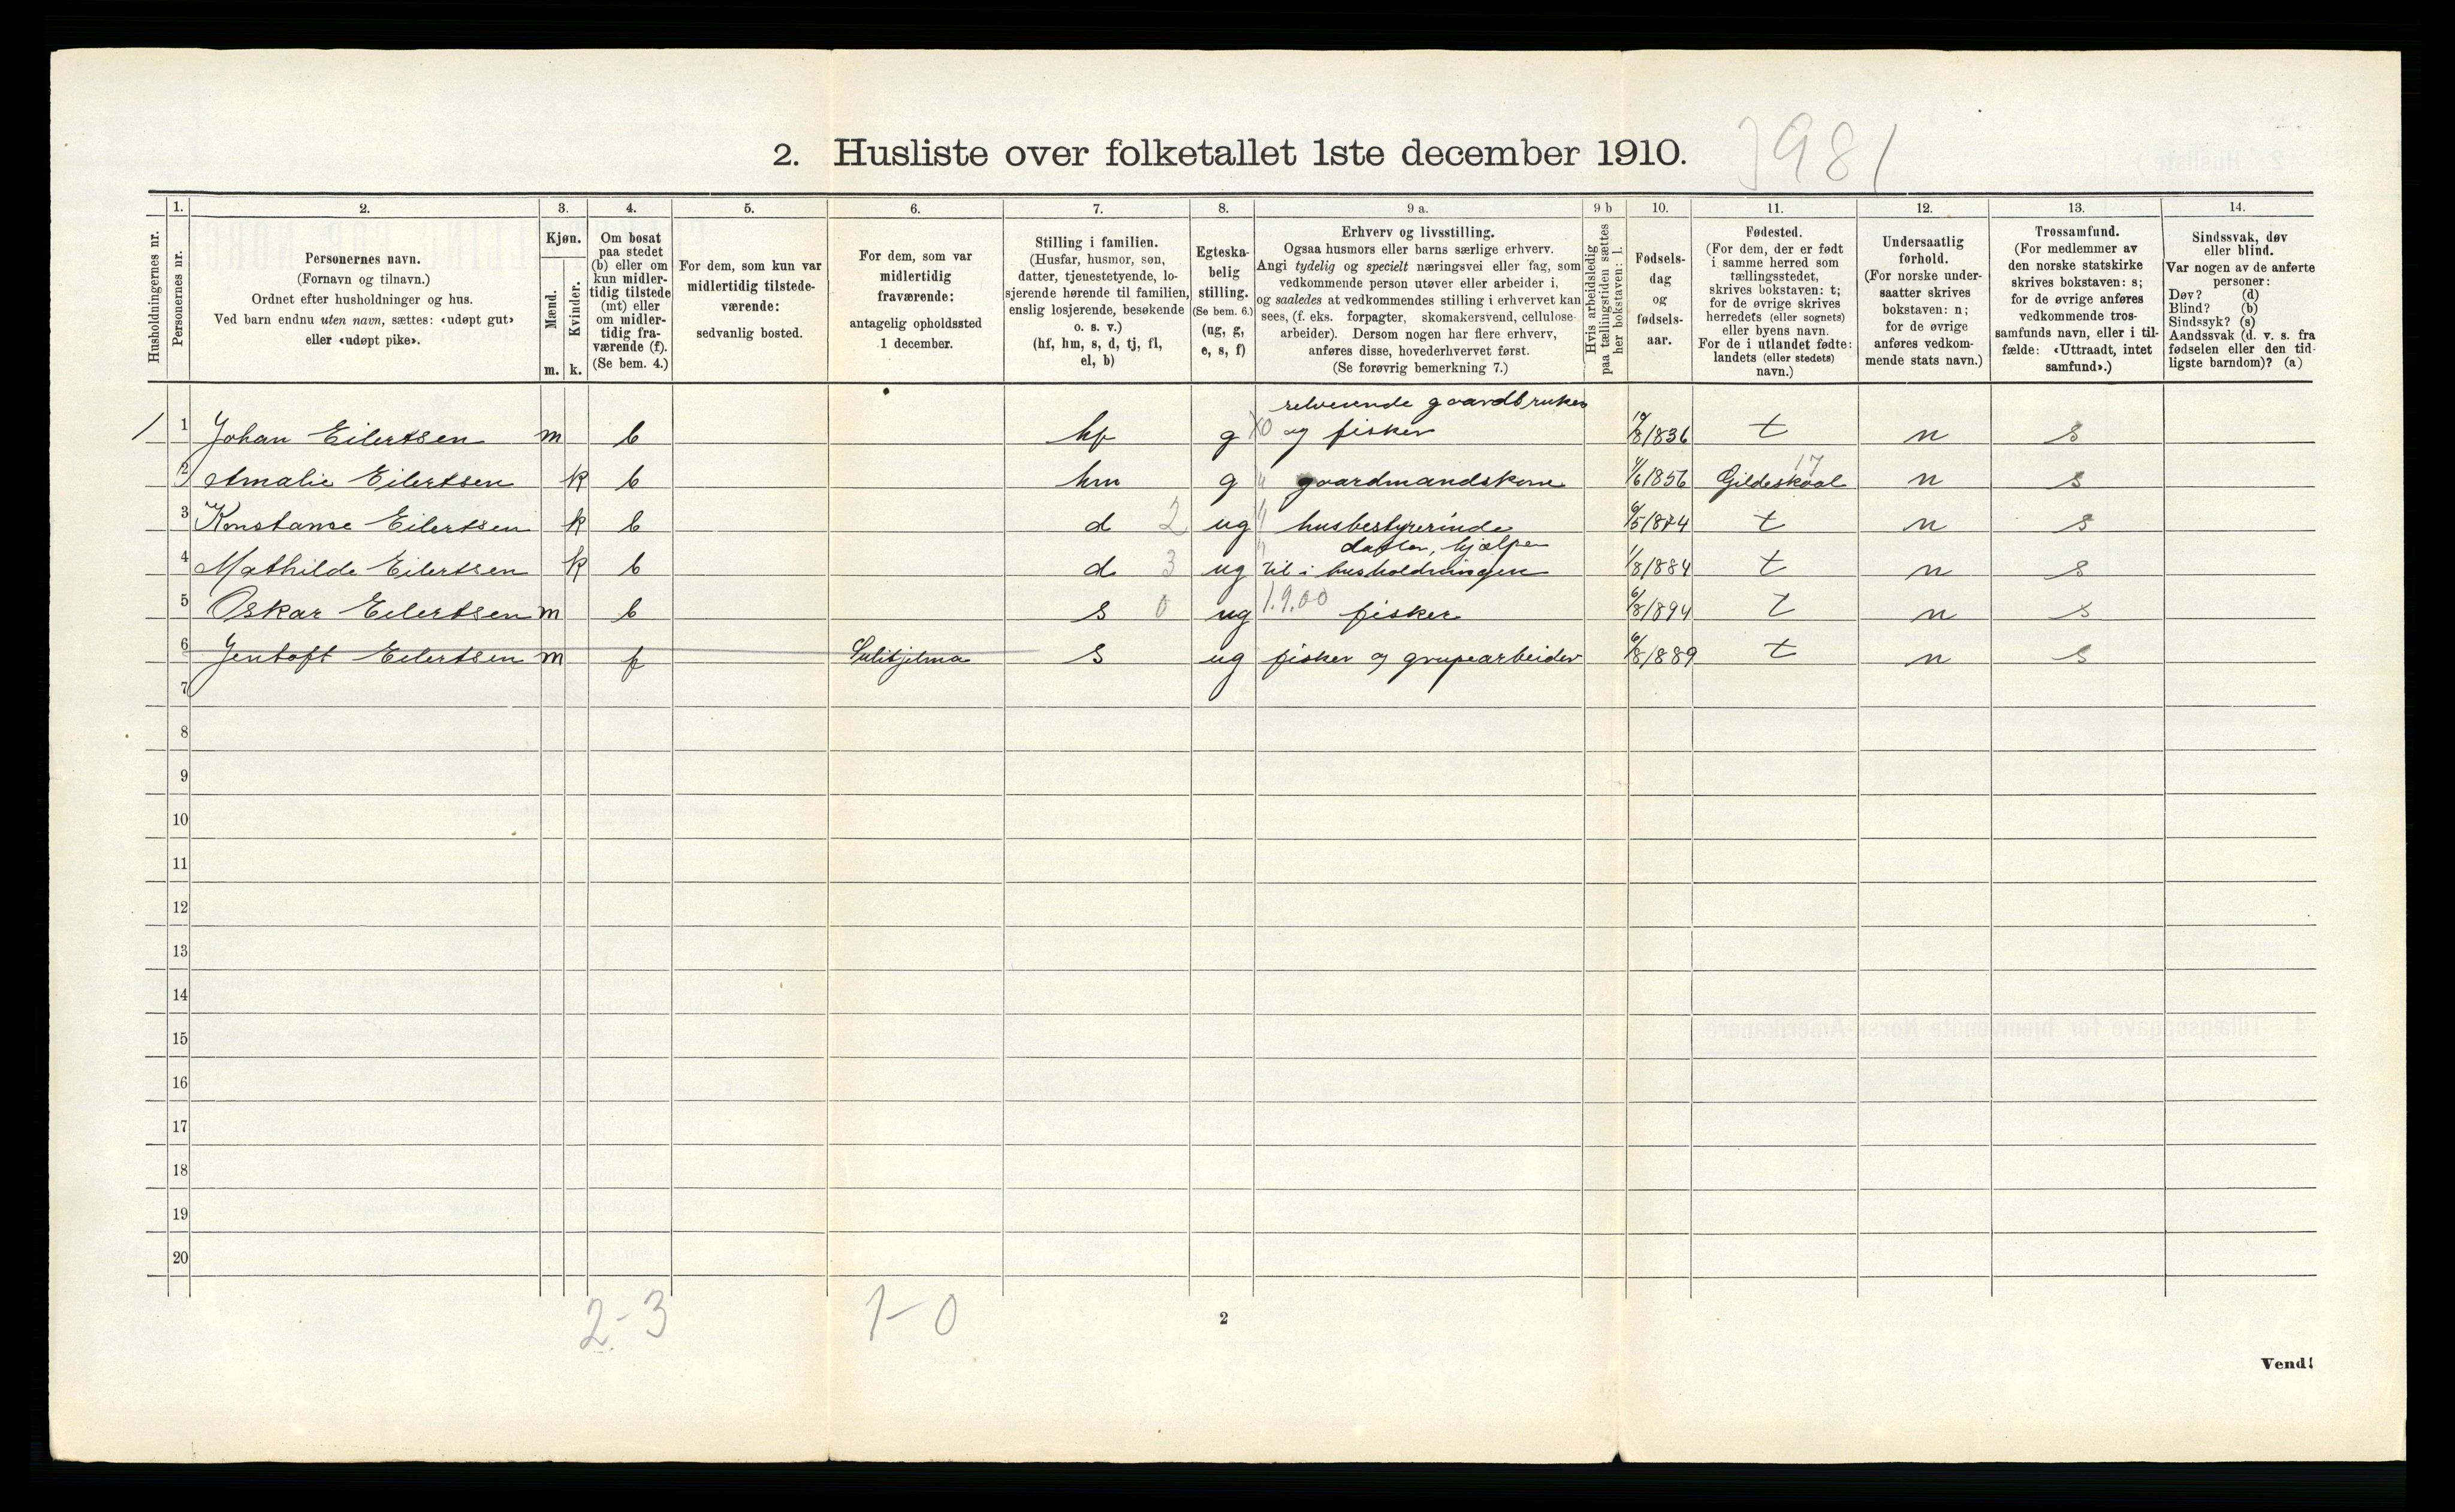 2. Husliste over folketallet 1ste december 1910.
3981
1. 2. 3. 4. 5. 6. 7. 8. 9 a. 9 b 10. 11. 12. 13. 14.
Husholdningernes nr.
Personernes nr.
Personernes navn.
(Fornavn og tilnavn.)
Ordnet efter husholdninger og hus.
Ved barn endnu uten navn, sættes: «udøpt gut»
eller «udøpt pike».
Kjøn.
Mænd.
Kvinder.
m. k.
Om bosat
paa stedet
(b) eller om
kun midler-
tidig tilstede
(mt) eller
om midler-
tidig fra-
værende (f).
(Se bem. 4.)
For dem, som kun var
midlertidig tilstede-
værende:
sedvanlig bosted.
For dem, som var
midlertidig
fraværende:
antagelig opholdssted
1 december.
Stilling i familien.
(Husfar, husmor, søn,
datter, tjenestetyende, lo-
sjerende hørende til familien,
enslig losjerende, besøkende
o. s. v.)
(hf, hm, s, d, tj, fl,
el, b)
Egteska-
belig
stilling.
(Se bem. 6.)
(ug, g,
e, s, f)
Erhverv og livsstilling.
Ogsaa husmors eller barns særlige erhverv.
Angi tydelig og specielt næringsvei eller fag, som
vedkommende person utøver eller arbeider i,
og saaledes at vedkommendes stilling i erhvervet kan
sees, (f. eks. forpagter, skomakersvend, cellulose-
arbeider). Dersom nogen har flere erhverv,
anføres disse, hovederhvervet først.
(Se forøvrig bemerkning 7.)
Hvis arbeidsledig
paa tællingstiden sættes
her bokstaven: l.
Fødsels-
dag
og
fødsels-
aar.
Fødested.
(For dem, der er født
i samme herred som
tællingsstedet,
skrives bokstaven: t;
for de øvrige skrives
herredets (eller sognets)
eller byens navn.
For de i utlandet fødte:
landets (eller stedets)
navn.)
Undersaatlig
forhold.
(For norske under-
saatter skrives
bokstaven: n;
for de øvrige
anføres vedkom-
mende stats navn.)
Trossamfund.
(For medlemmer av
den norske statskirke
skrives bokstaven: s;
for de øvrige anføres
vedkommende tros-
samfunds navn, eller i til-
fælde: «Uttraadt, intet
samfund».)
Sindssvak, døv
eller blind.
Var nogen av de anførte
personer:
Døv? (d)
Blind? (b)
Sindssyk? (s)
Aandssvak (d. v. s. fra
fødselen eller den tid-
ligste barndom)? (a)
selveiende gaardbruker
1 1 Johan Eilertsen m b hf g X0 og fisker 8/1836 t n s
17
2 Amalie Eilertsen k b hm g " gaardmandskone 6/1856 Gildeskaal n s
3 Konstanse Eilertsen k b d 2 ug " husbestyrerinde 6/5/1874 t n s
datter, hjælper
4 Mathilde Eilertsen k b d 3 ug " til i husholdningen 1/8/1884 t n s
5 Oskar Eilertsen m b s 0 ug 1.9.00 fisker 6/8/1894 t n s
6 Jentoft Eilertsen m f Sulitjelma s ug fisker og grupearbeider 6/8/1889 t n s
7
8
9
10
11
12
13
14
15
16
17
18
19
20
2-3 1-0
2
Vend!